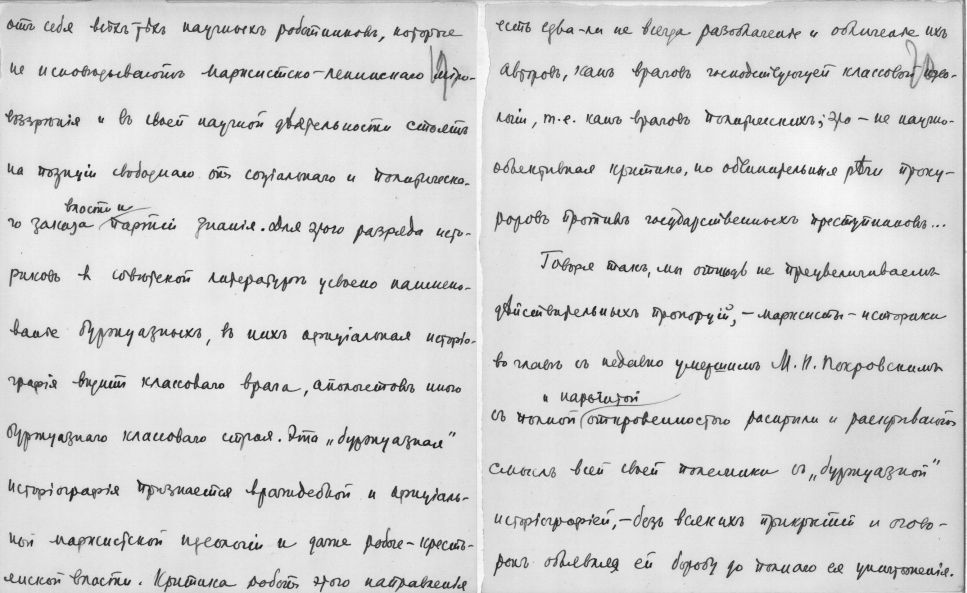 отъ себя всѣхъ тѣхъ научныхъ работниковъ, которые
не исповѣдываютъ марксистско-ленинскаго міро-
воззрѣнія и въ своей научной дѣятельности стоятъ
на позиціи свободнаго отъ соціальнаго и политическа-
власти и
го заказа партіи знанія. Для этого разряда исто-
риковъ въ совѣтской литературѣ усвоено наимено-
ваніе буржуазныхъ, въ нихъ офиціальная исторіо-
графія видитъ классоваго врага, апологетовъ иного
буржуазнаго классоваго строя. Эта „буржуазная“
исторіографія признается враждебной и офиціаль-
ной марксистской идеологіи и даже рабоче-кресть-
янской власти. Критика работъ этого направленія
есть едва-ли не всегда разоблаченіе и обличеніе ихъ
авторовъ, какъ враговъ господствующей классовой идео-
логіи, т.е. какъ враговъ политическихъ; это – не научно-
объективная критика, но обвинительныя рѣчи проку-
роровъ противъ государственныхъ преступниковъ...
Говоря такъ, мы отнюдь не преувеличиваемъ
дѣйствительныхъ пропорцій, – марксисты-историки
во главѣ съ недавно умершимъ М. Н. Покровскимъ
и нарочитой
съ полной откровенностью раскрыли и раскрываютъ
смыслъ всей своей полемики съ „буржуазной“
исторіографіей, – безъ всякихъ прикрытій и огово-
рокъ объявляя ей борьбу до полнаго ея уничтоженія.